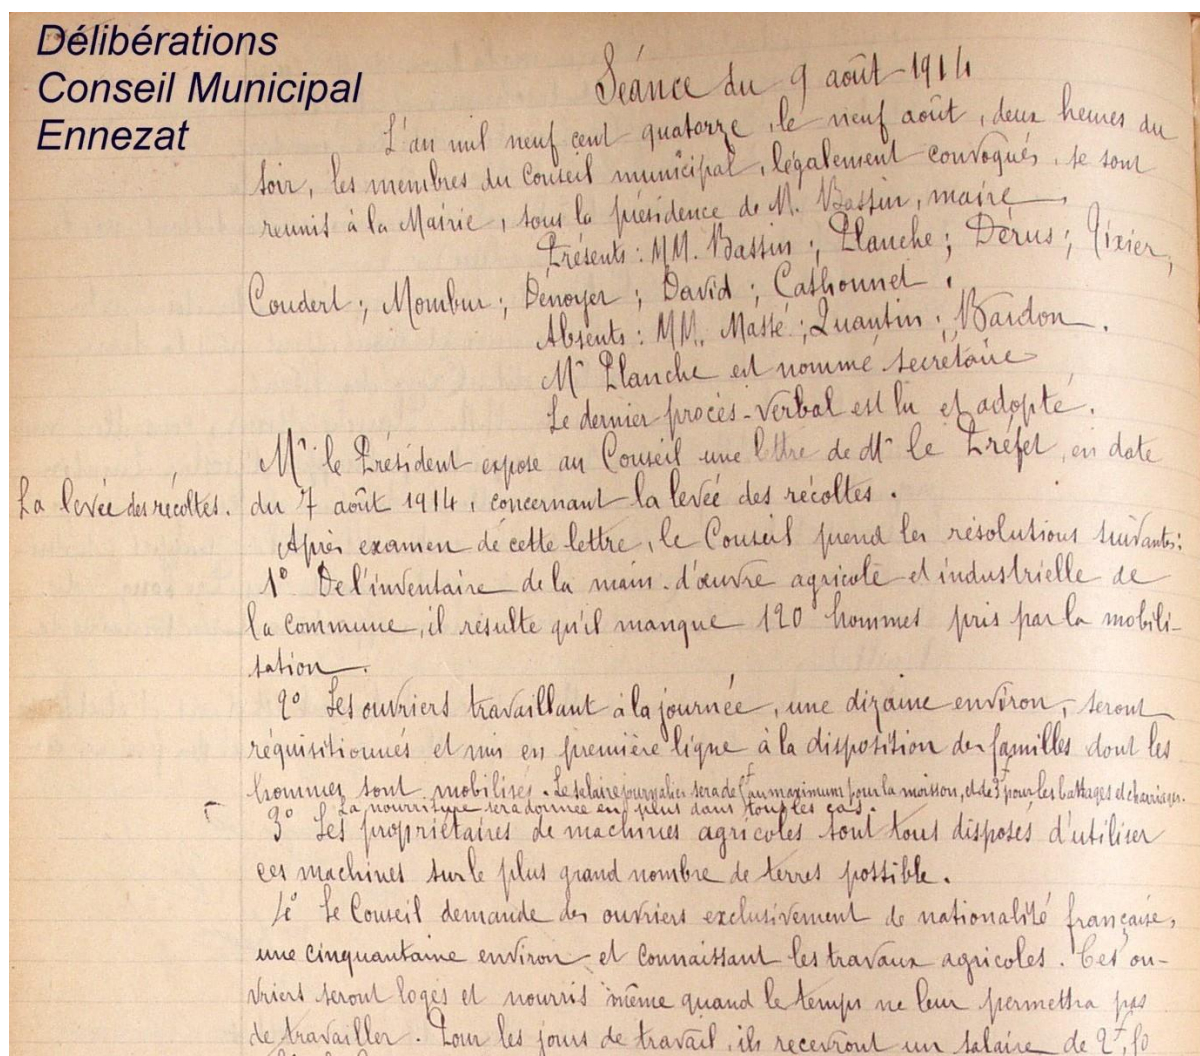 Délibérations
Conseil Municipal
Ennezat
Séance du 9 août 1914
L'an mil neuf cent quatorze, le neuf août, deux heures du
soir, les membres du Conseil municipal, légalement convoqués, se sont
reunis à la Mairie, sous la présidence de M. Bassin, maire
Présents: MM. Bassin; Planche; Dérus; Tixier;
Coudert; Mombur; Dénoyer; David; Cathonnet.
Absents: MM. Massé; Quantin; Bardon.
Mr Planche est nommé secrétaire
Le dernier procès-verbal est lu et adopté.
Mr le Président expose au Conseil une lettre de Mr le Préfet, en date
La levée des récoltes. du 7 août 1914, concernant la levée des récoltes.
Après examen de cette lettre, le Conseil prend les résolutions suivantes:
1° De l'inventaire de la main-d'œuvre agricole et industrielle de
la commune, il résulte qu'il manque 120 hommes pris par la mobili-
sation.
2° Les ouvriers travaillant à la journée, une dizaine environ, seront
réquisitionnés et mis en première ligne à la disposition des familles dont les
hommes sont mobilisés. Le salaire journalier sera de au maximum pour la moisson, et de 3f pour les battages et charriages.
La nourriture sera donnée en plus dans tous les cas.
3° Les propriétaires de machines agricoles sont tous disposés d'utiliser
ces machines sur le plus grand nombre de terres possible.
4° Le Conseil demande des ouvriers exclusivement de nationalité française,
une cinquantaine environ et connaissant les travaux agricoles. Ces ou-
vriers seront logés et nourris même quand le temps ne leur permettra pas
de travailler. Pour les jours de travail, ils recevront un salaire de 2f,50